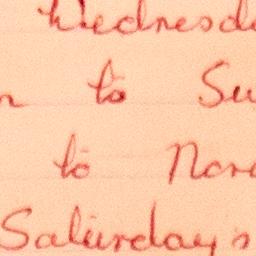 Wednesda
to Su
to Nor
Saturday's